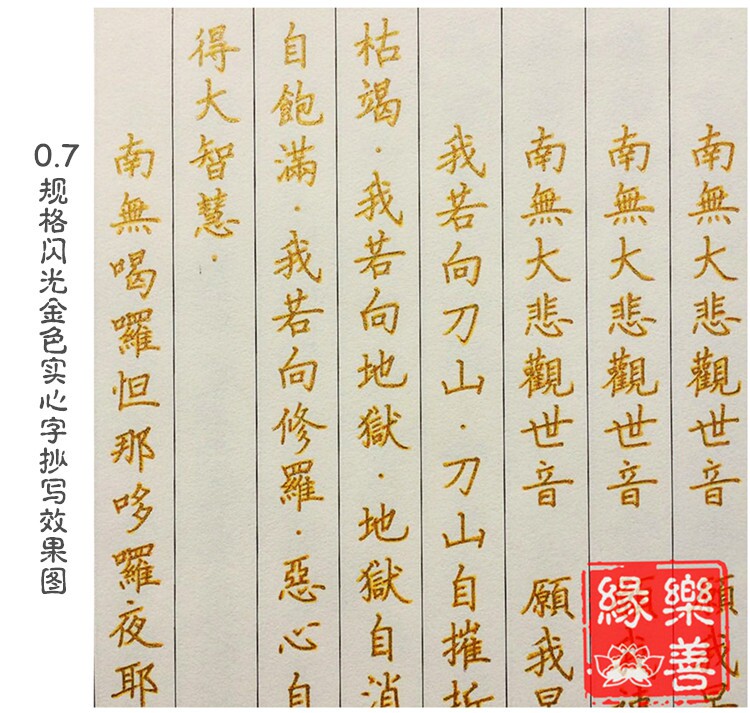 0.7规格闪光金色实心字抄写效果图
南無大悲觀世音 願我
南無大悲觀世音
南無大悲觀世音 願我
我若向刀山．刀山自摧折
枯竭．我若向地獄．地獄自消
自飽滿．我若向修羅．惡心自
得大智慧．
南無喝囉怛那哆囉夜耶
樂善緣